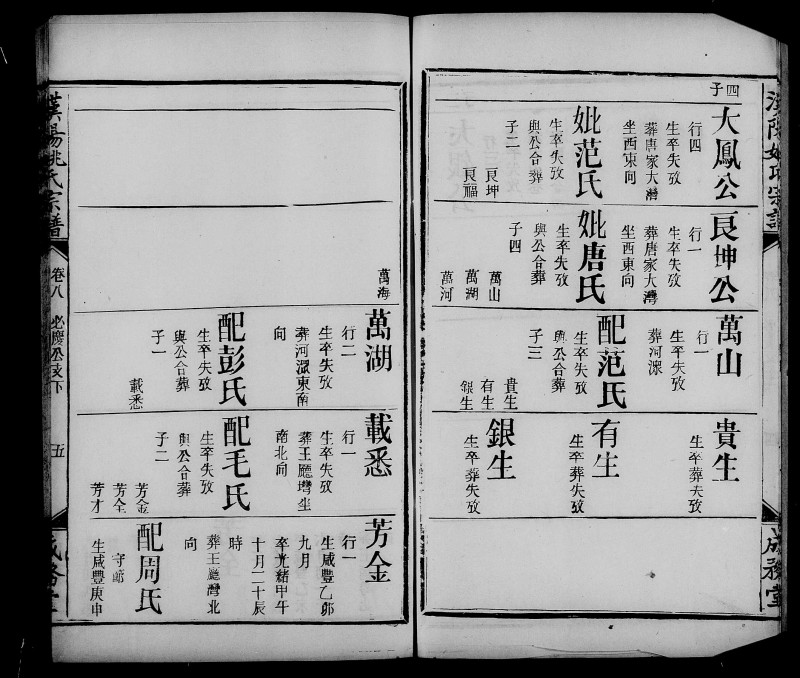 四子
大鳳公
行四
生卒失攷
葬唐家大灣
坐西東向
妣范氏
生卒失攷
與公合葬
子二
良坤
良福
良坤公
行一
生卒失攷
葬唐家大灣
坐西東向
妣唐氏
生卒失攷
與公合葬
子四
萬山
萬湖
萬河
萬山
行一
生卒失攷
葬河濵
配范氏
生卒失攷
與公合葬
子三
貴生
有生
銀生
貴生
生卒葬失攷
有生
生卒葬失攷
銀生
生卒葬失攷
成務堂
漢陽姚氏宗譜
卷八
必慶公支下
五
萬海
萬湖
行二
生卒失攷
葬河濵東南
向
配彭氏
生卒失攷
與公合葬
子一
載悉
載悉
行一
生卒失攷
葬王廳塆坐
南北向
配毛氏
生卒失攷
與公合葬
子二
芳金
芳全
芳才
芳金
行一
生咸豐乙卯
九月
卒光緒甲午
十月二十辰
時
葬王廳灣北
向
配周氏
守節
生咸豐庚申